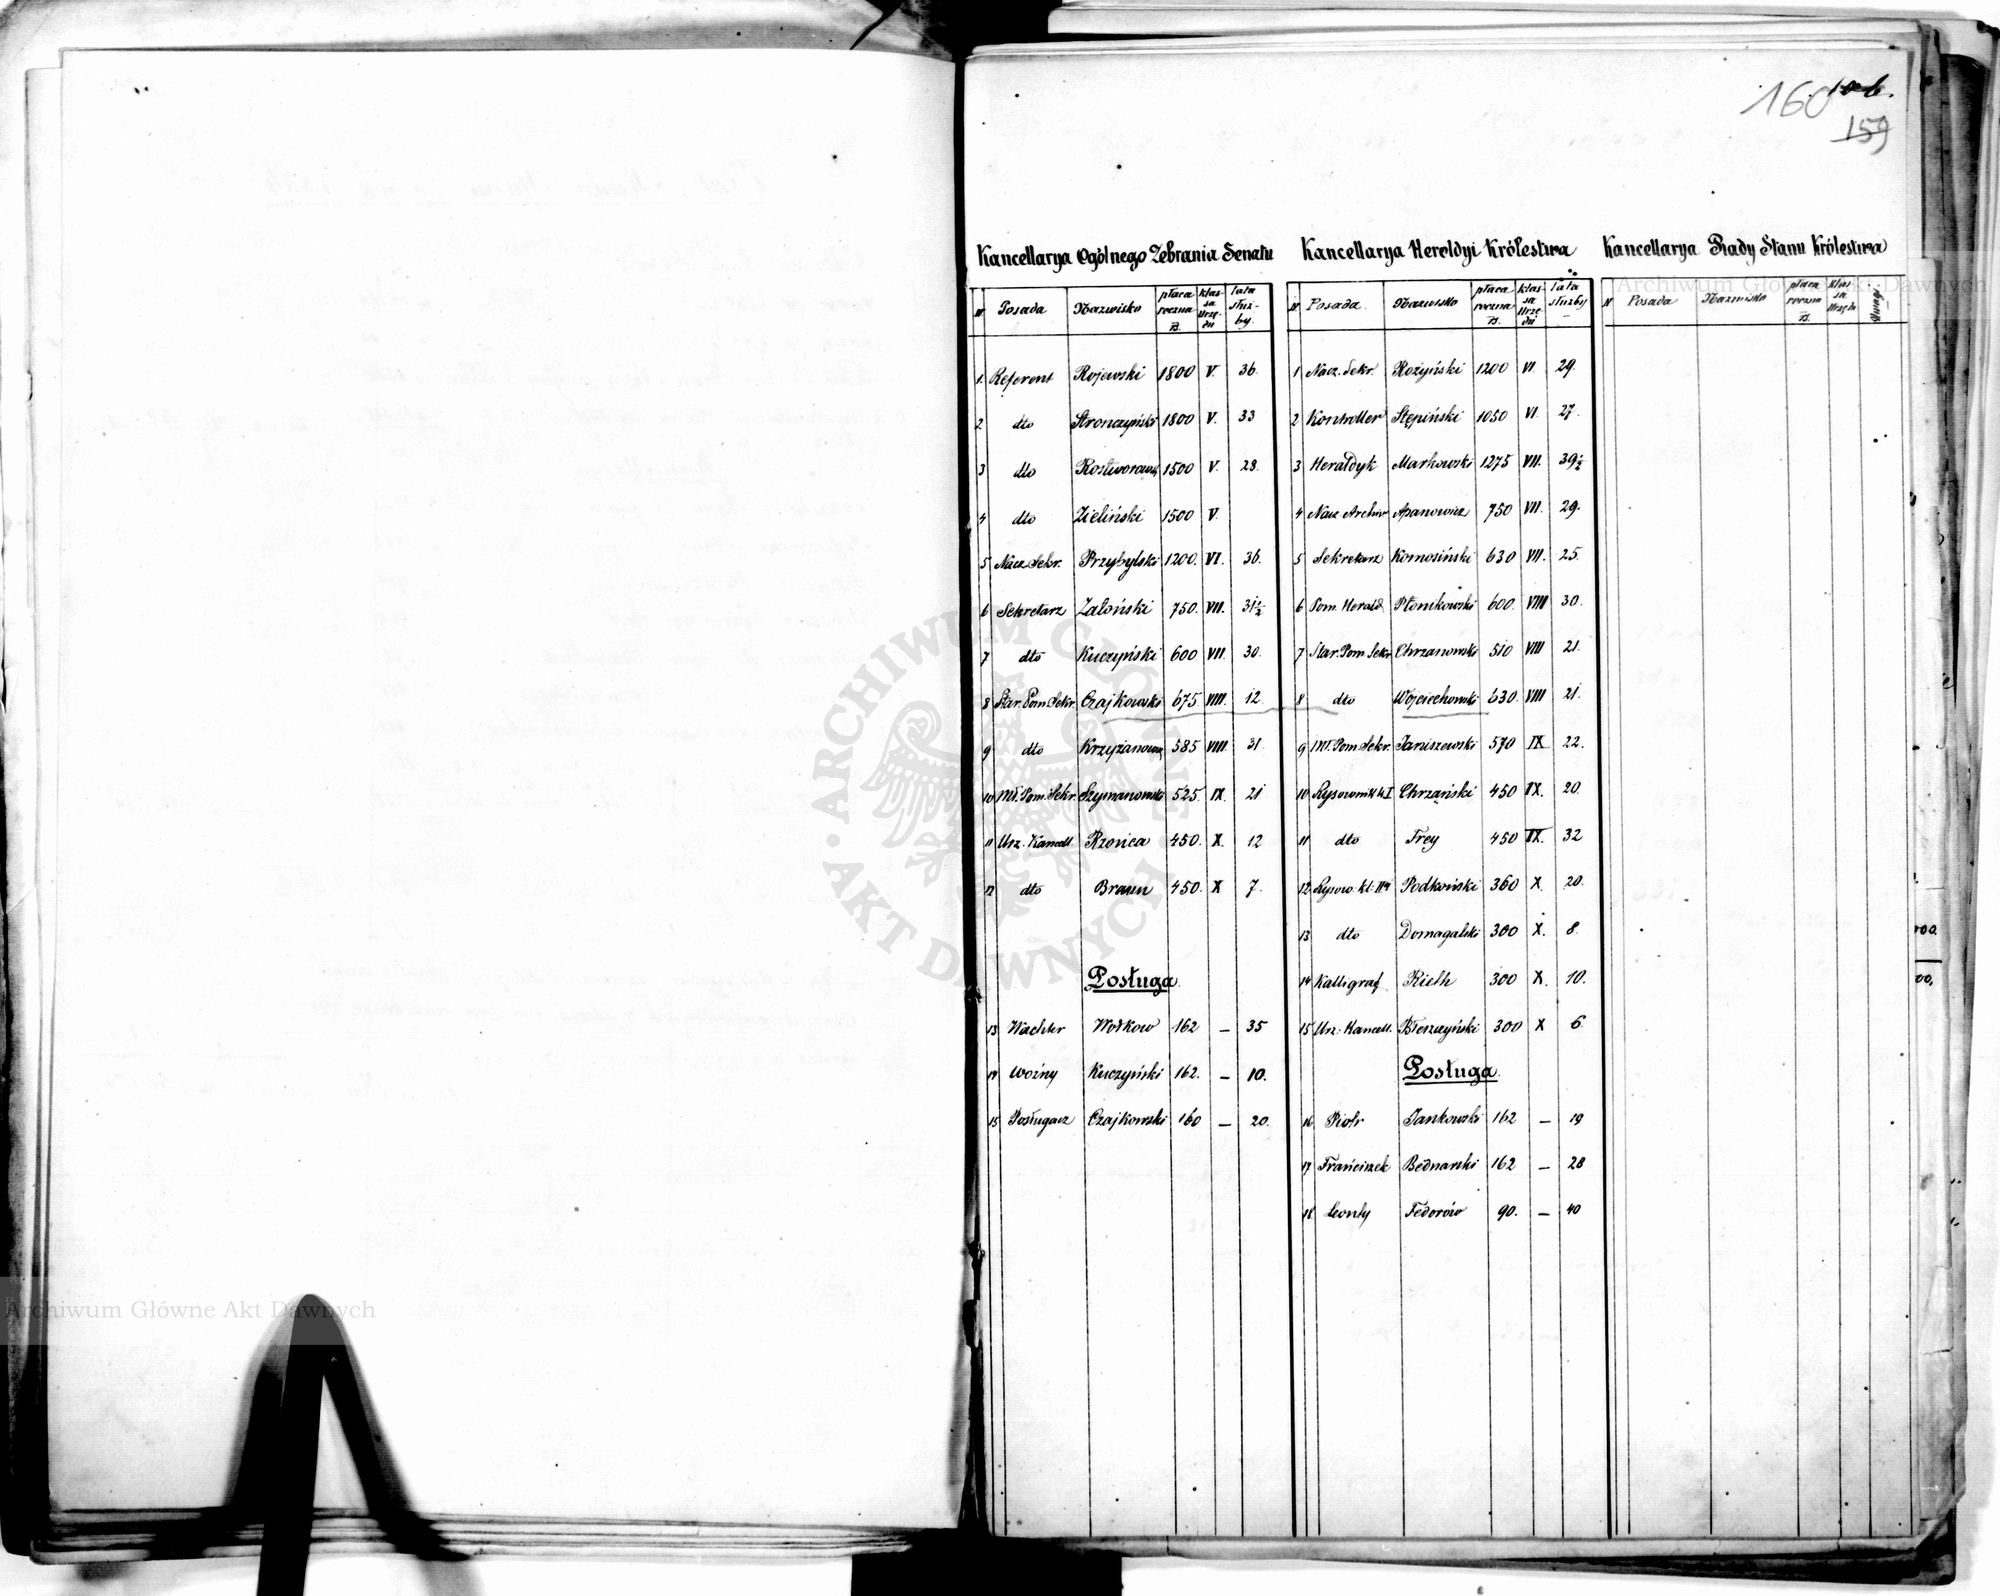 160
159
Kancellarya Ogólnego Zebrania Senatu
N Posada Nazwisko płaca roczna Rs. klassa Urzędu lata służby.
1. Referent Rojewski 1800 V. 36.
2 dto Stronczyński 1800 V. 33
3 dto 1500 V. 28.
4 dto Zieliński 1500 V.
5 Nacz. Sekr. Przybylski 1200. VI. 36.
6 Sekretarz Załoński 750. VII. 31½
7 dto Kuczyński 600 VII. 30.
8 Star. Pom. Sekr. Czajkowski 675 VIII. 12.
9 dto 585 VIII. 31.
10 Mł. Pom. Sekr. Szymanowski 525. IX. 21
11 Urz. Kancell. Rzońca 450. X. 12
12 dto Braun 450. X 7.
Posługa.
13 Wachter Wołkow 162 — 35
14 Woźny Kuczyński 162. — 10.
15 Posługacz Czajkowski 160 — 20.
Kancellarya Heroldyi Królestwa
N Posada. Nazwisko płaca roczna Rs. klassa Urzędu lata służby
1 Nacz. Sekr. Rożyński 1200 VI. 29.
2 Kontroller Stępiński 1050 VI. 27.
3 Heraldyk Markowski 1275 VII. 39½
4 Nacz Archiw Apanowicz 750 VII. 29.
5 Sekretarz Komosiński 630 VII. 25.
6 Pom. Herald. Płonikowski 600. VIII 30.
7 Star. Pom Sekr Chrzanowski 510 VIII 21.
8 dto Wojciechowski 630. VIII 21.
9 Mł. Pom Sekr. Janiszewski 570 IX 22.
10 Rysownik kl I Chrzański 450 IX. 20.
11 dto Frey 450 IX. 32
12 Rysow. kl. II Podkoński 360 X. 20.
13 dto Domagalski 300 X. 8.
14 Kalligraf. Rieth 300 X. 10.
15 Urz: Kancell. Błeszczyński 300 X 6.
Posługa.
16 Piotr Jankowski 162 — 19
17 Franciszek Bednarski 162 — 28
18 Leonty Fedorów 90. — 40
Kancellarya Rady Stanu Królestwa
N Posada Nazwisko płaca roczna Rs. klassa Urzędu Uwagi
Archiwum Główne Akt Dawnych
Archiwum Główne Akt Dawnych
ARCHIWUM GŁÓWNE AKT DAWNYCH